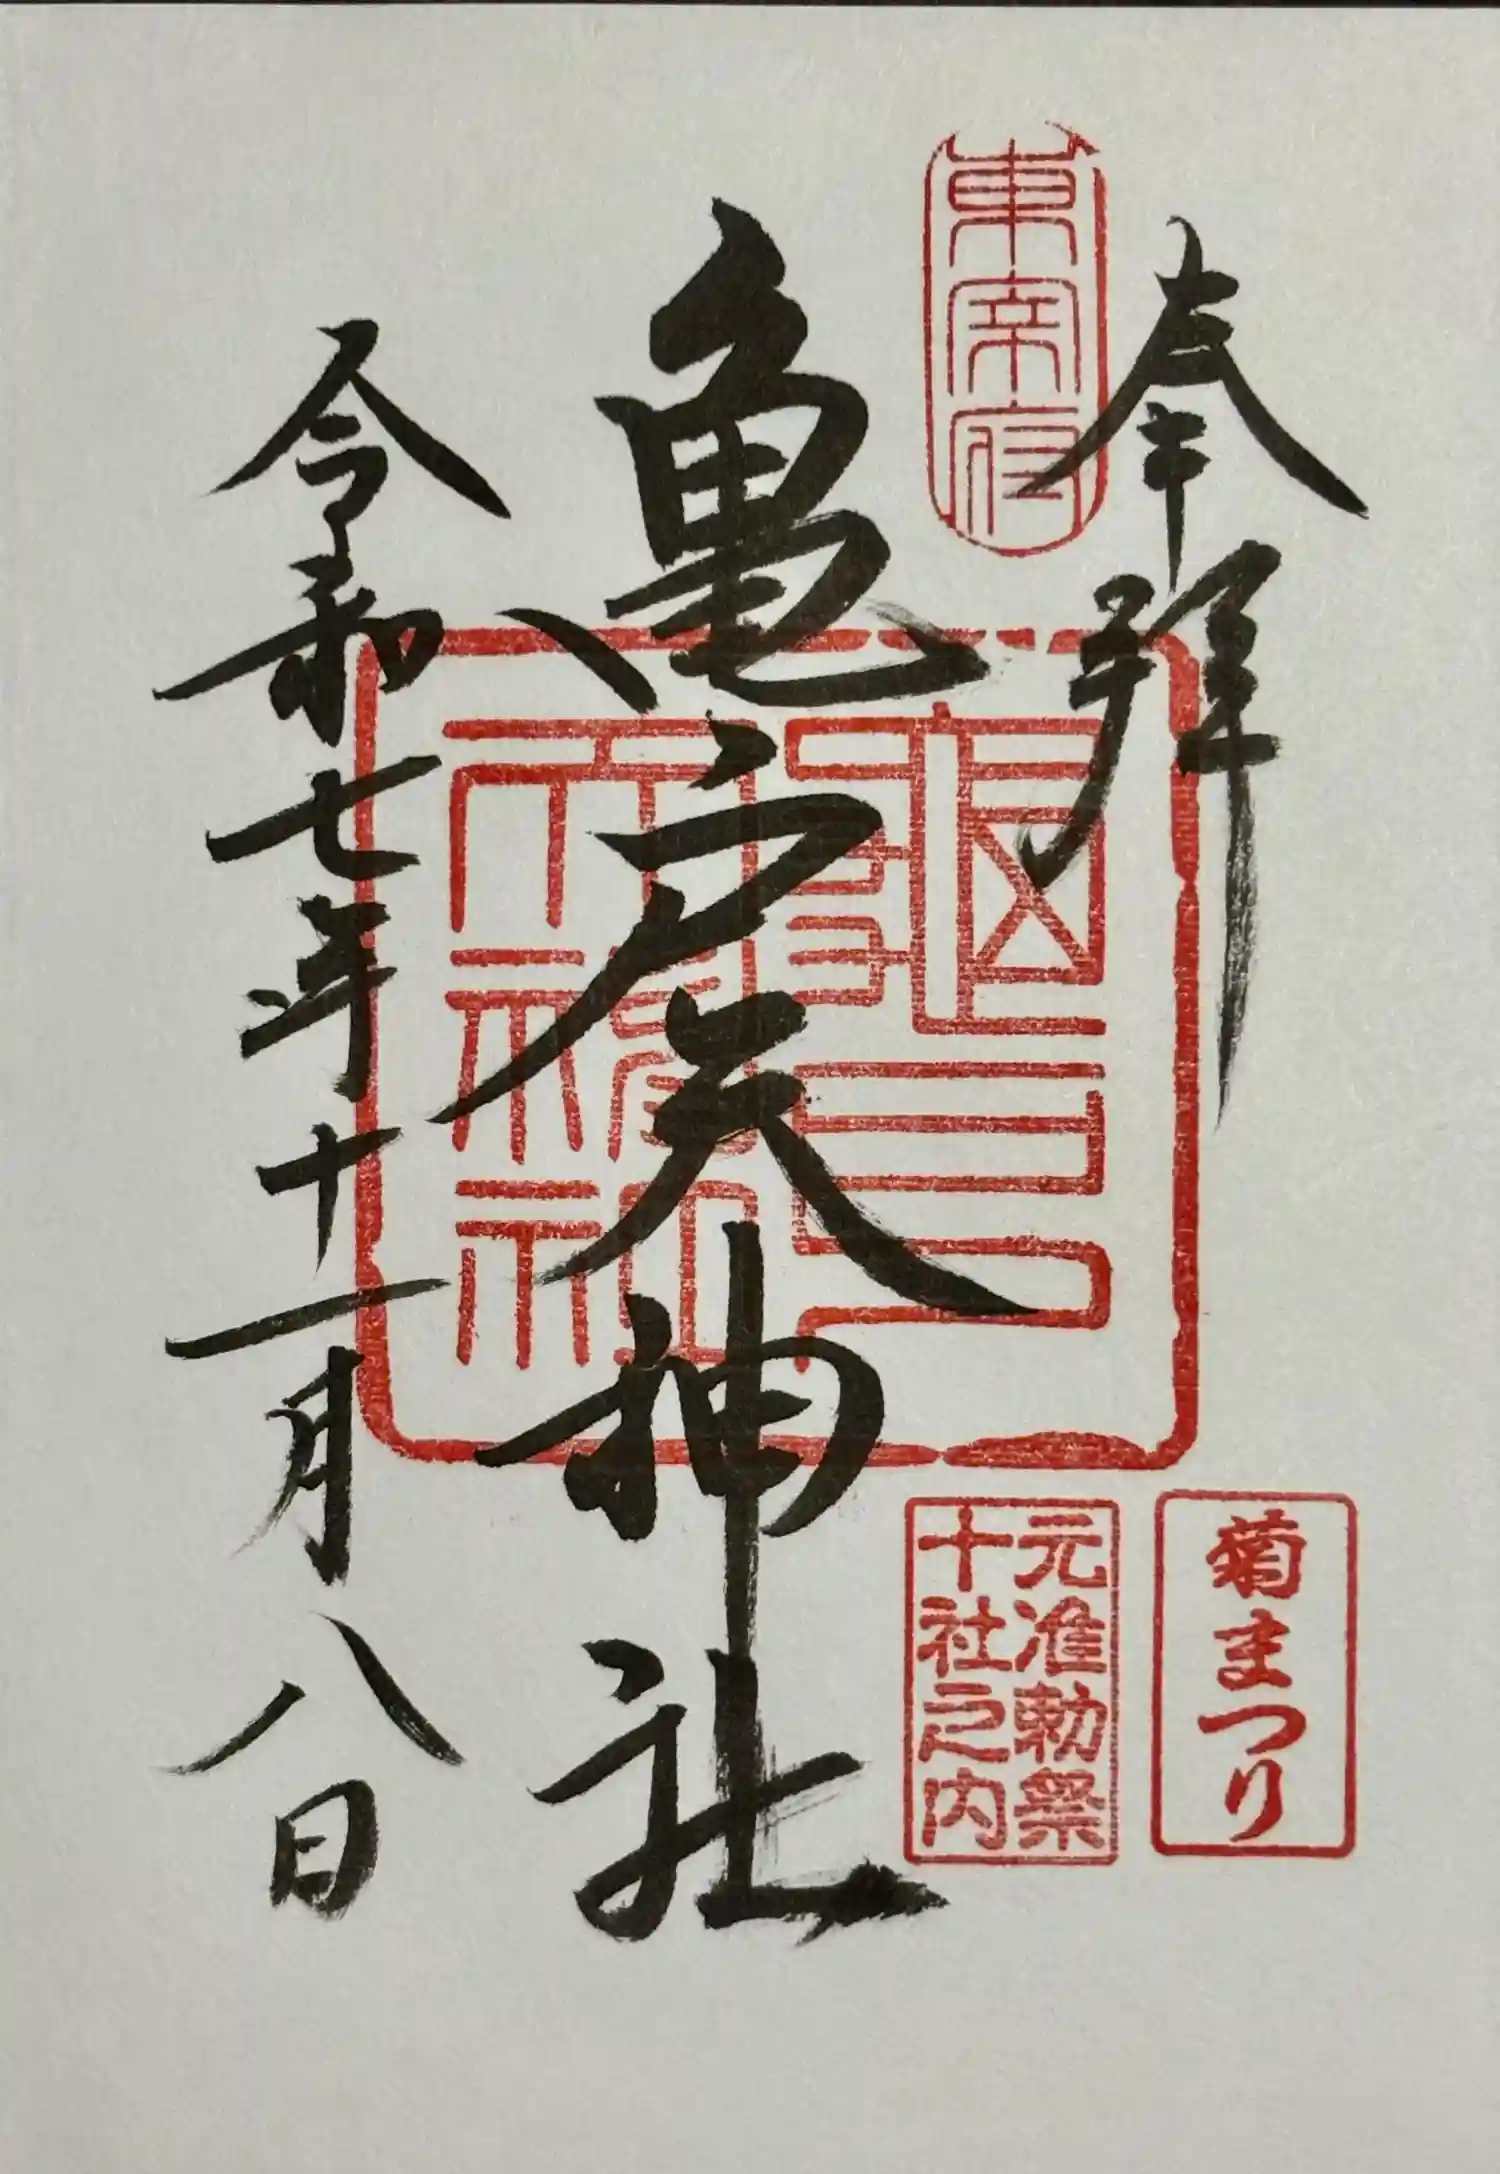 奉拝
東宰府
亀戸天神社
令和七年十一月八日
菊まつり
元准勅祭
十社之内